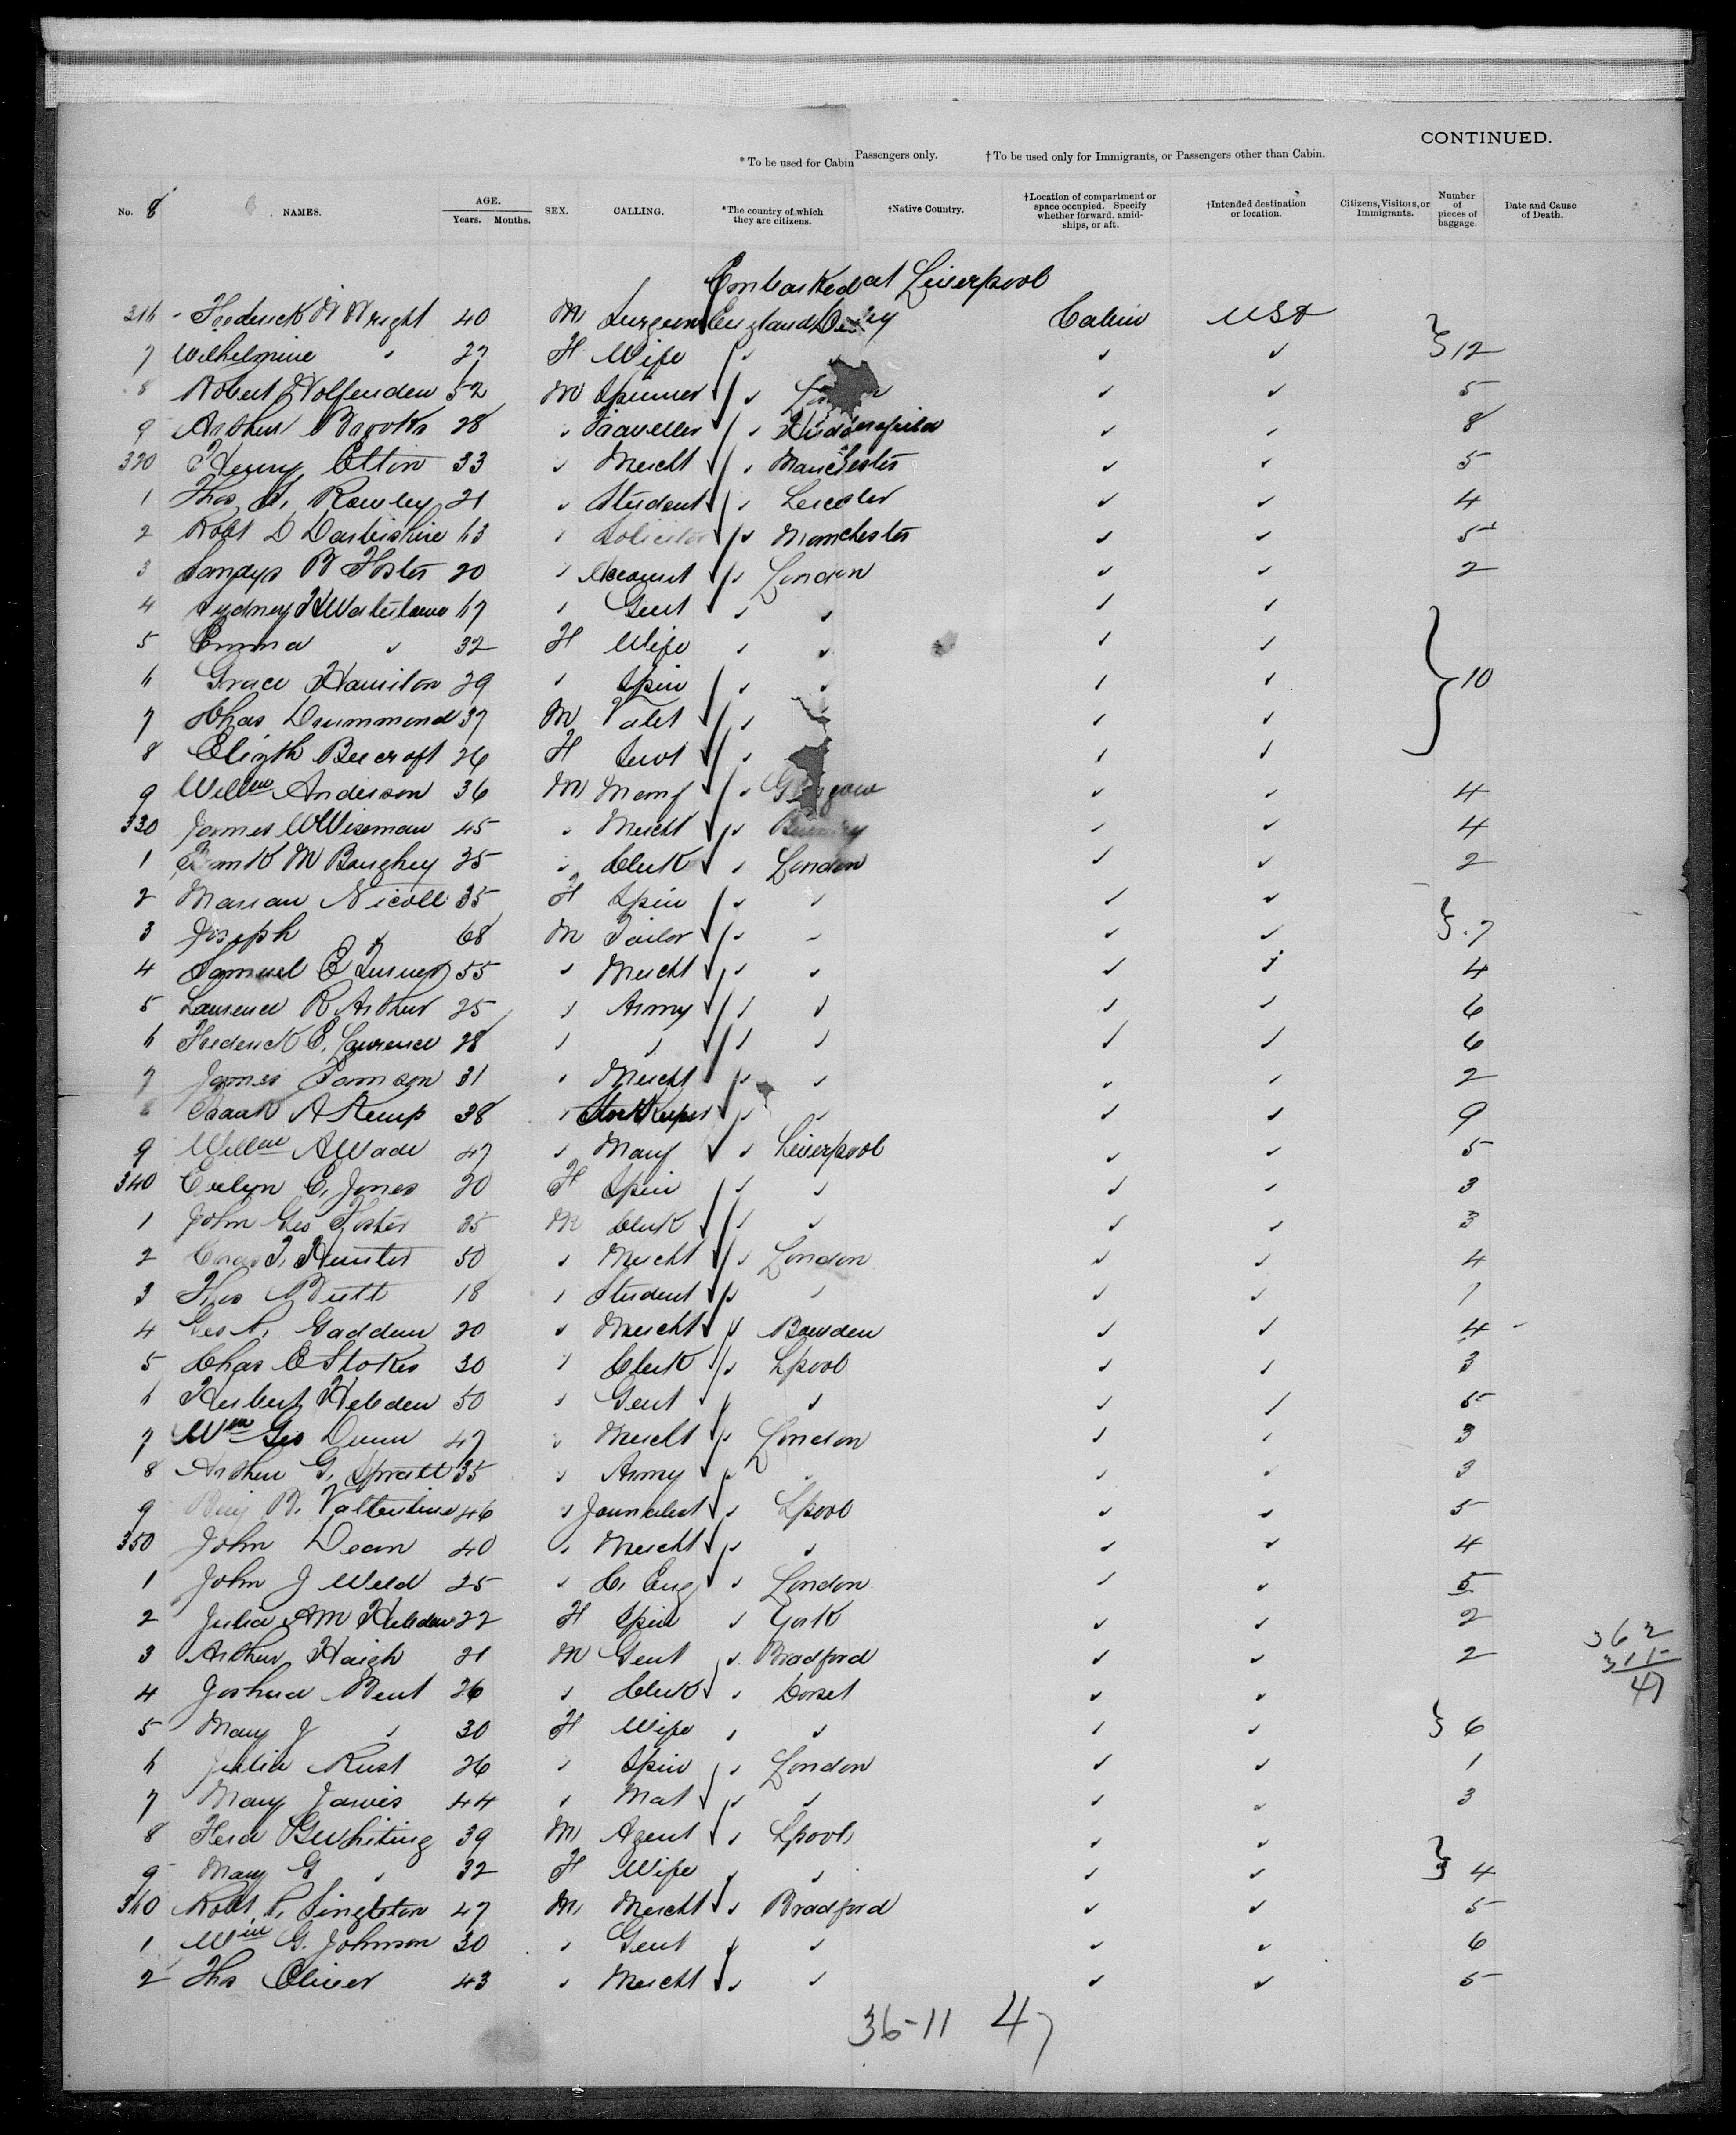 CONTINUED.
* To be used for Cabin Passengers only. † To be used only for Immigrants, or Passengers other than Cabin.
No. 8 NAMES. AGE. Years. Months. SEX. CALLING. *The country of which they are citizens. †Native Country. †Location of compartment or space occupied. Specify whether forward, amidships, or aft. †Intended destination or location. Citizens, Visitors, or Immigrants. Number of pieces of baggage. Date and Cause of Death.
Embarked at Liverpool
316 Frederick W Wright 40 M Surgeon England Cabin USA
7 Wilhelmine " 27 F Wife " ✓ ✓ } 12
8 Robert Wolfenden 52 M Spinner " ✓ ✓ 5
9 Arthur Brooks 28 " Traveller " Huddersfield ✓ ✓ 8
320 Henry Etton 33 " Mercht " Manchester ✓ ✓ 5
1 Thos Rowley 21 " Student " Leicester ✓ ✓ 4
2 Robt D Darbishire 63 " Solicitor " Manchester ✓ ✓ 5
3 Sandys B Foster 20 " Account " London ✓ ✓ 2
4 Sydney Waterlow 67 " Gent " " ✓ ✓
5 Emma " 32 F Wife " " ✓ ✓
6 Grace Hamilton 29 " Spin " " ✓ ✓ } 10
7 Chas Drummond 37 M Valet " ✓ ✓
8 Elizth Beecroft 26 F Servt " ✓ ✓
9 Willm Anderson 36 M Manf " Glasgow ✓ ✓ 4
330 James W Wiseman 45 " Mercht " ✓ ✓ 4
1 Frank M Boughey 25 " Clerk " London ✓ ✓ 2
2 Marian Nicoll 35 F Spin " " ✓ ✓
3 Joseph " 68 M Tailor " " ✓ ✓ } 7
4 Samuel E 55 " Mercht " " ✓ ✓ 4
5 Laurence R Arthur 25 " Army " " ✓ ✓ 6
6 Frederick E. Laurence 28 " " " " ✓ ✓ 6
7 James Samson 31 " Mercht " " ✓ ✓ 2
8 Frank A Kemp 38 " Storekeeper " " ✓ ✓ 9
9 Willm A Wade 47 " Manf " Liverpool ✓ ✓ 5
340 Evelyn C. Jones 20 F Spin " " ✓ ✓ 3
1 John Geo Foster 35 M Clerk " " ✓ ✓ 3
2 T. Hunter 50 " Mercht " London ✓ ✓ 4
3 Thos Butt 18 " Student " " ✓ ✓ 1
4 Geo Gaddum 20 " Mercht " Bowden ✓ ✓ 4
5 Chas E Stokes 30 " Clerk " Lpool ✓ ✓ 3
6 Herbert Hebden 50 " Gent " " ✓ ✓ 5
7 Wm Geo Dunn 47 " Mercht " London ✓ ✓ 3
8 Arthur G. Spratt 35 " Army " " ✓ ✓ 3
9 Benj B. Valentine 46 " Journalist " Lpool ✓ ✓ 5
350 John Dean 40 " Mercht " " ✓ ✓ 4
1 John J Weld 25 " C. Eng " London ✓ ✓ 5
2 Julia AM Hebden 22 F Spin " York ✓ ✓ 2
3 Arthur Haigh 21 M Gent " Bradford ✓ ✓ 2
362
315
47
4 Joshua Bent 26 " Clerk " Dorset ✓ ✓
5 Mary J " 30 F Wife " " ✓ ✓ } 6
6 Julia Rust 26 " Spin " London ✓ ✓ 1
7 Mary Jarvis 44 " Mat " " ✓ ✓ 3
8 Whiting 39 M Agent " Lpool ✓ ✓
9 Mary G " 32 F Wife " " ✓ ✓ } 4
360 Robt P. Singleton 47 M Mercht " Bradford ✓ ✓ 5
1 Wm G. Johnson 30 " Gent " " ✓ ✓ 6
2 Thos Oliver 43 " Mercht " " ✓ ✓ 5
36-11 47